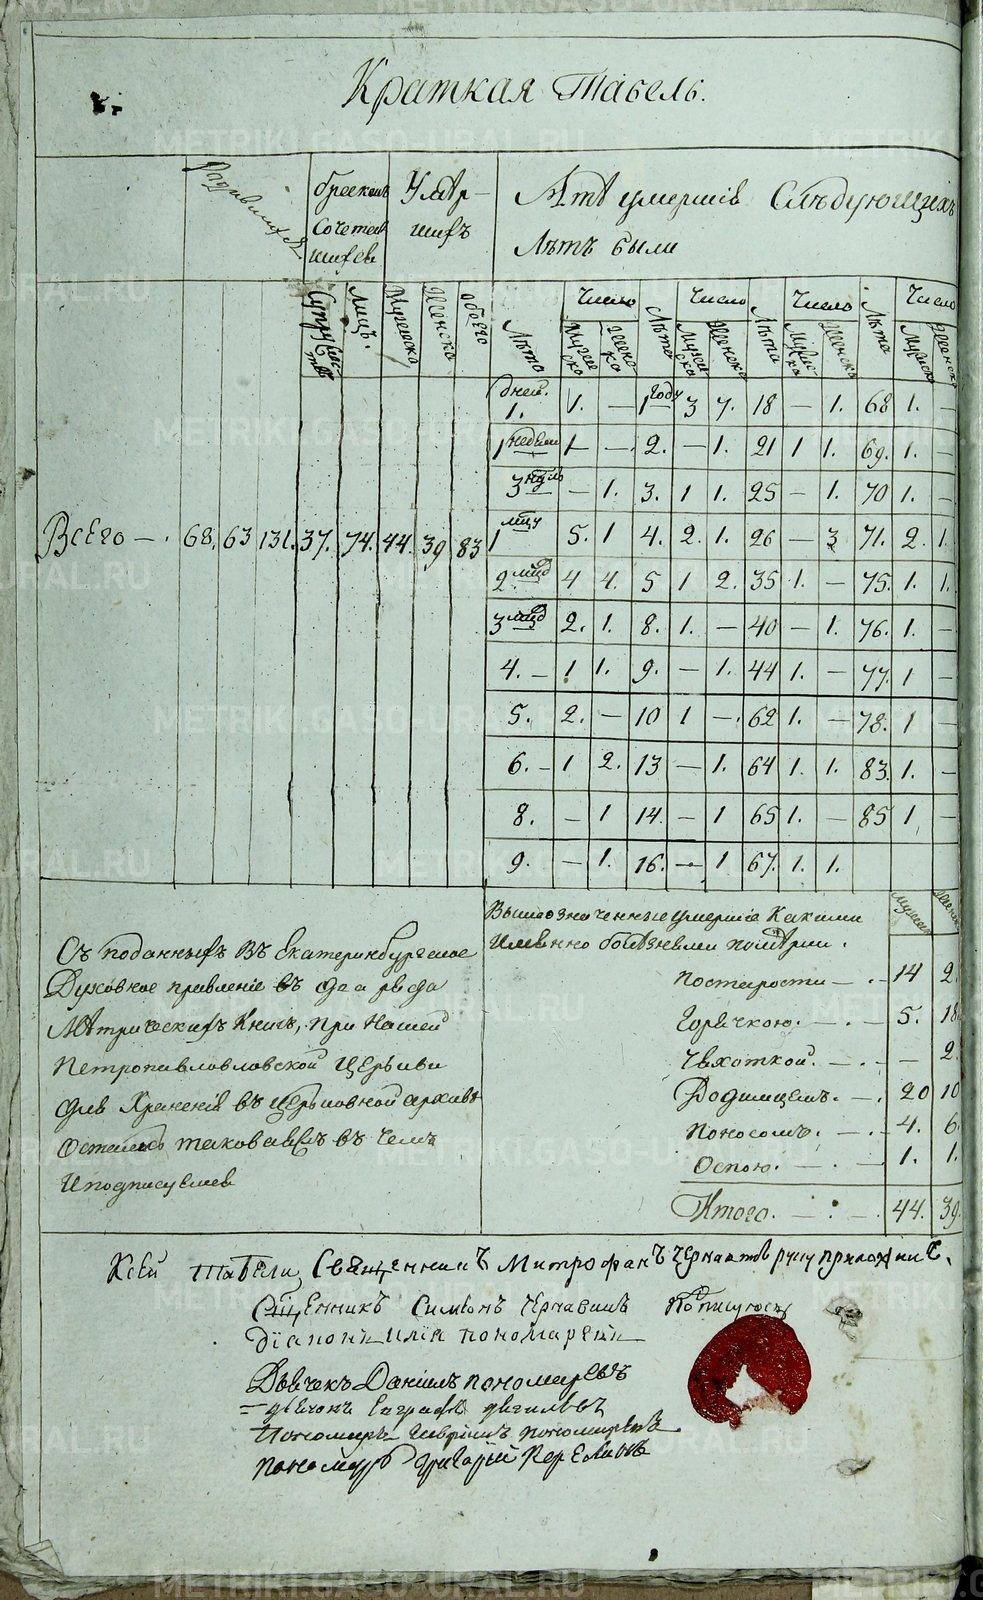 Краткая Табель.
Родившихся
бракомъ
Сочетав
шихся
Умер-
шихъ
Лѣтъ были
Супруже-
ствъ
Лицъ.
Мужеска
Женска
обоего
Лѣта
Число
Мужес
ка
Женс
ка
Лѣта
Число
Мужес
ка
Женска
Лѣта
Число
Мужес
ка
Женска
Лѣта
Число
Мужеска
Женска
дней.
1. 1. — 1 году 3 7. 18 — 1. 68 1. —
1 недели 1 — 2. — 1. 21 1 1. 69. 1. —
3 — 1. 3. 1 1. 25 — 1. 70 1. —
1 5. 1 4. 2. 1. 26 — 3 71. 2. 1.
Всего — . 68. 63 131. 37. 74. 44. 39 83
2 4 4. 5 1 2. 35 1. — 75. 1. 1.
3 2. 1. 8. 1. — 40 — 1. 76. 1. —
4. — 1 1. 9. — 1. 44 1. — 77. 1 —
5. 2. — 10 1 —. 62 1. — 78. 1 —
6. — 1 2. 13 — 1. 64 1. 1. 83. 1. —
8. — 1 14. — 1 65 1. — 85 1 —
9. — 1. 16. — 1 67. 1. 1.
Съ поданныхъ Въ Екатеринбургское
Духовное правленіе
Метрическихъ Книгъ, при Нашей
Петропавловской Церькви
для Храненія въ церьковной архивѣ
въ чемъ
И подписуемся
Вышеозначенные умершіе Какими
Именно болѣзнями померли.
Мужеска
Женска
По старости — . — 14 2.
Горячкою. — . — 5. 18
Чахоткой. — . — — 2.
Родимцемъ. — . 20 10
Поносомъ. — . — 4. 6
Оспою. — . — 1. 1.
Итого. — . — . 44. 39.
Ксей Табели Священникъ Митрофанъ руку приложилъ.
Сщенникъ Симеонъ Чернавинъ Подписуюсь
Діаконъ Илія пономаревъ
Дьячекъ Даніилъ пономаревъ
дьячокъ Евграфъ
Пономарь пономаревъ
пономарь Григорій
METRIKI.GASO-URAL.RU